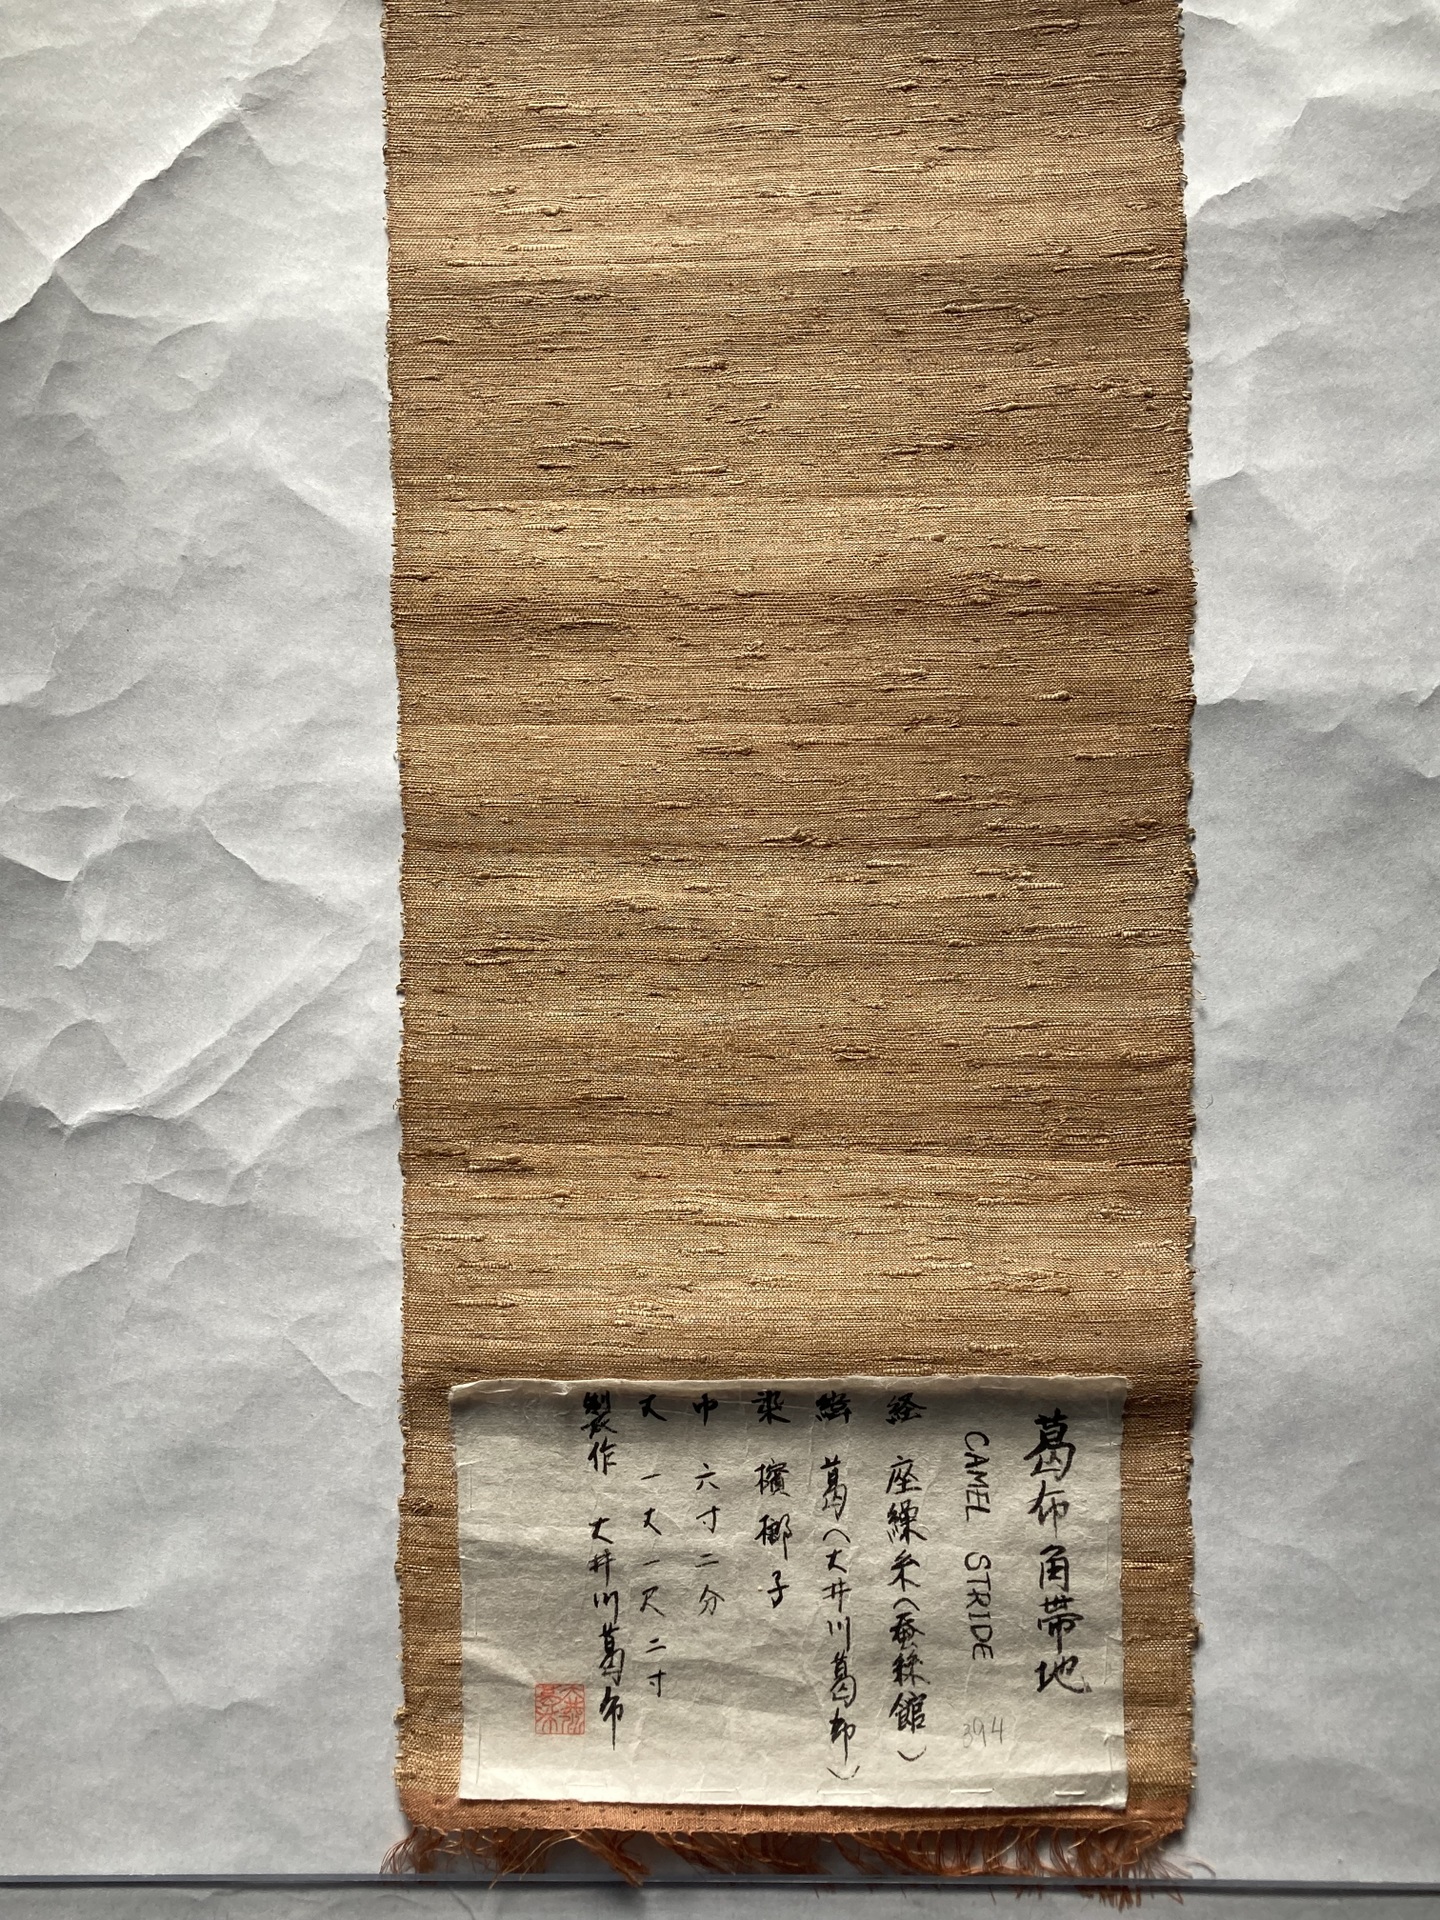 葛布角帯地
CAMEL STRIDE
394
経 座繰糸(蚕絲館)
緯 葛(大井川葛布)
染 檳榔子
巾 六寸二分
丈 一丈一尺二寸
製作 大井川葛布